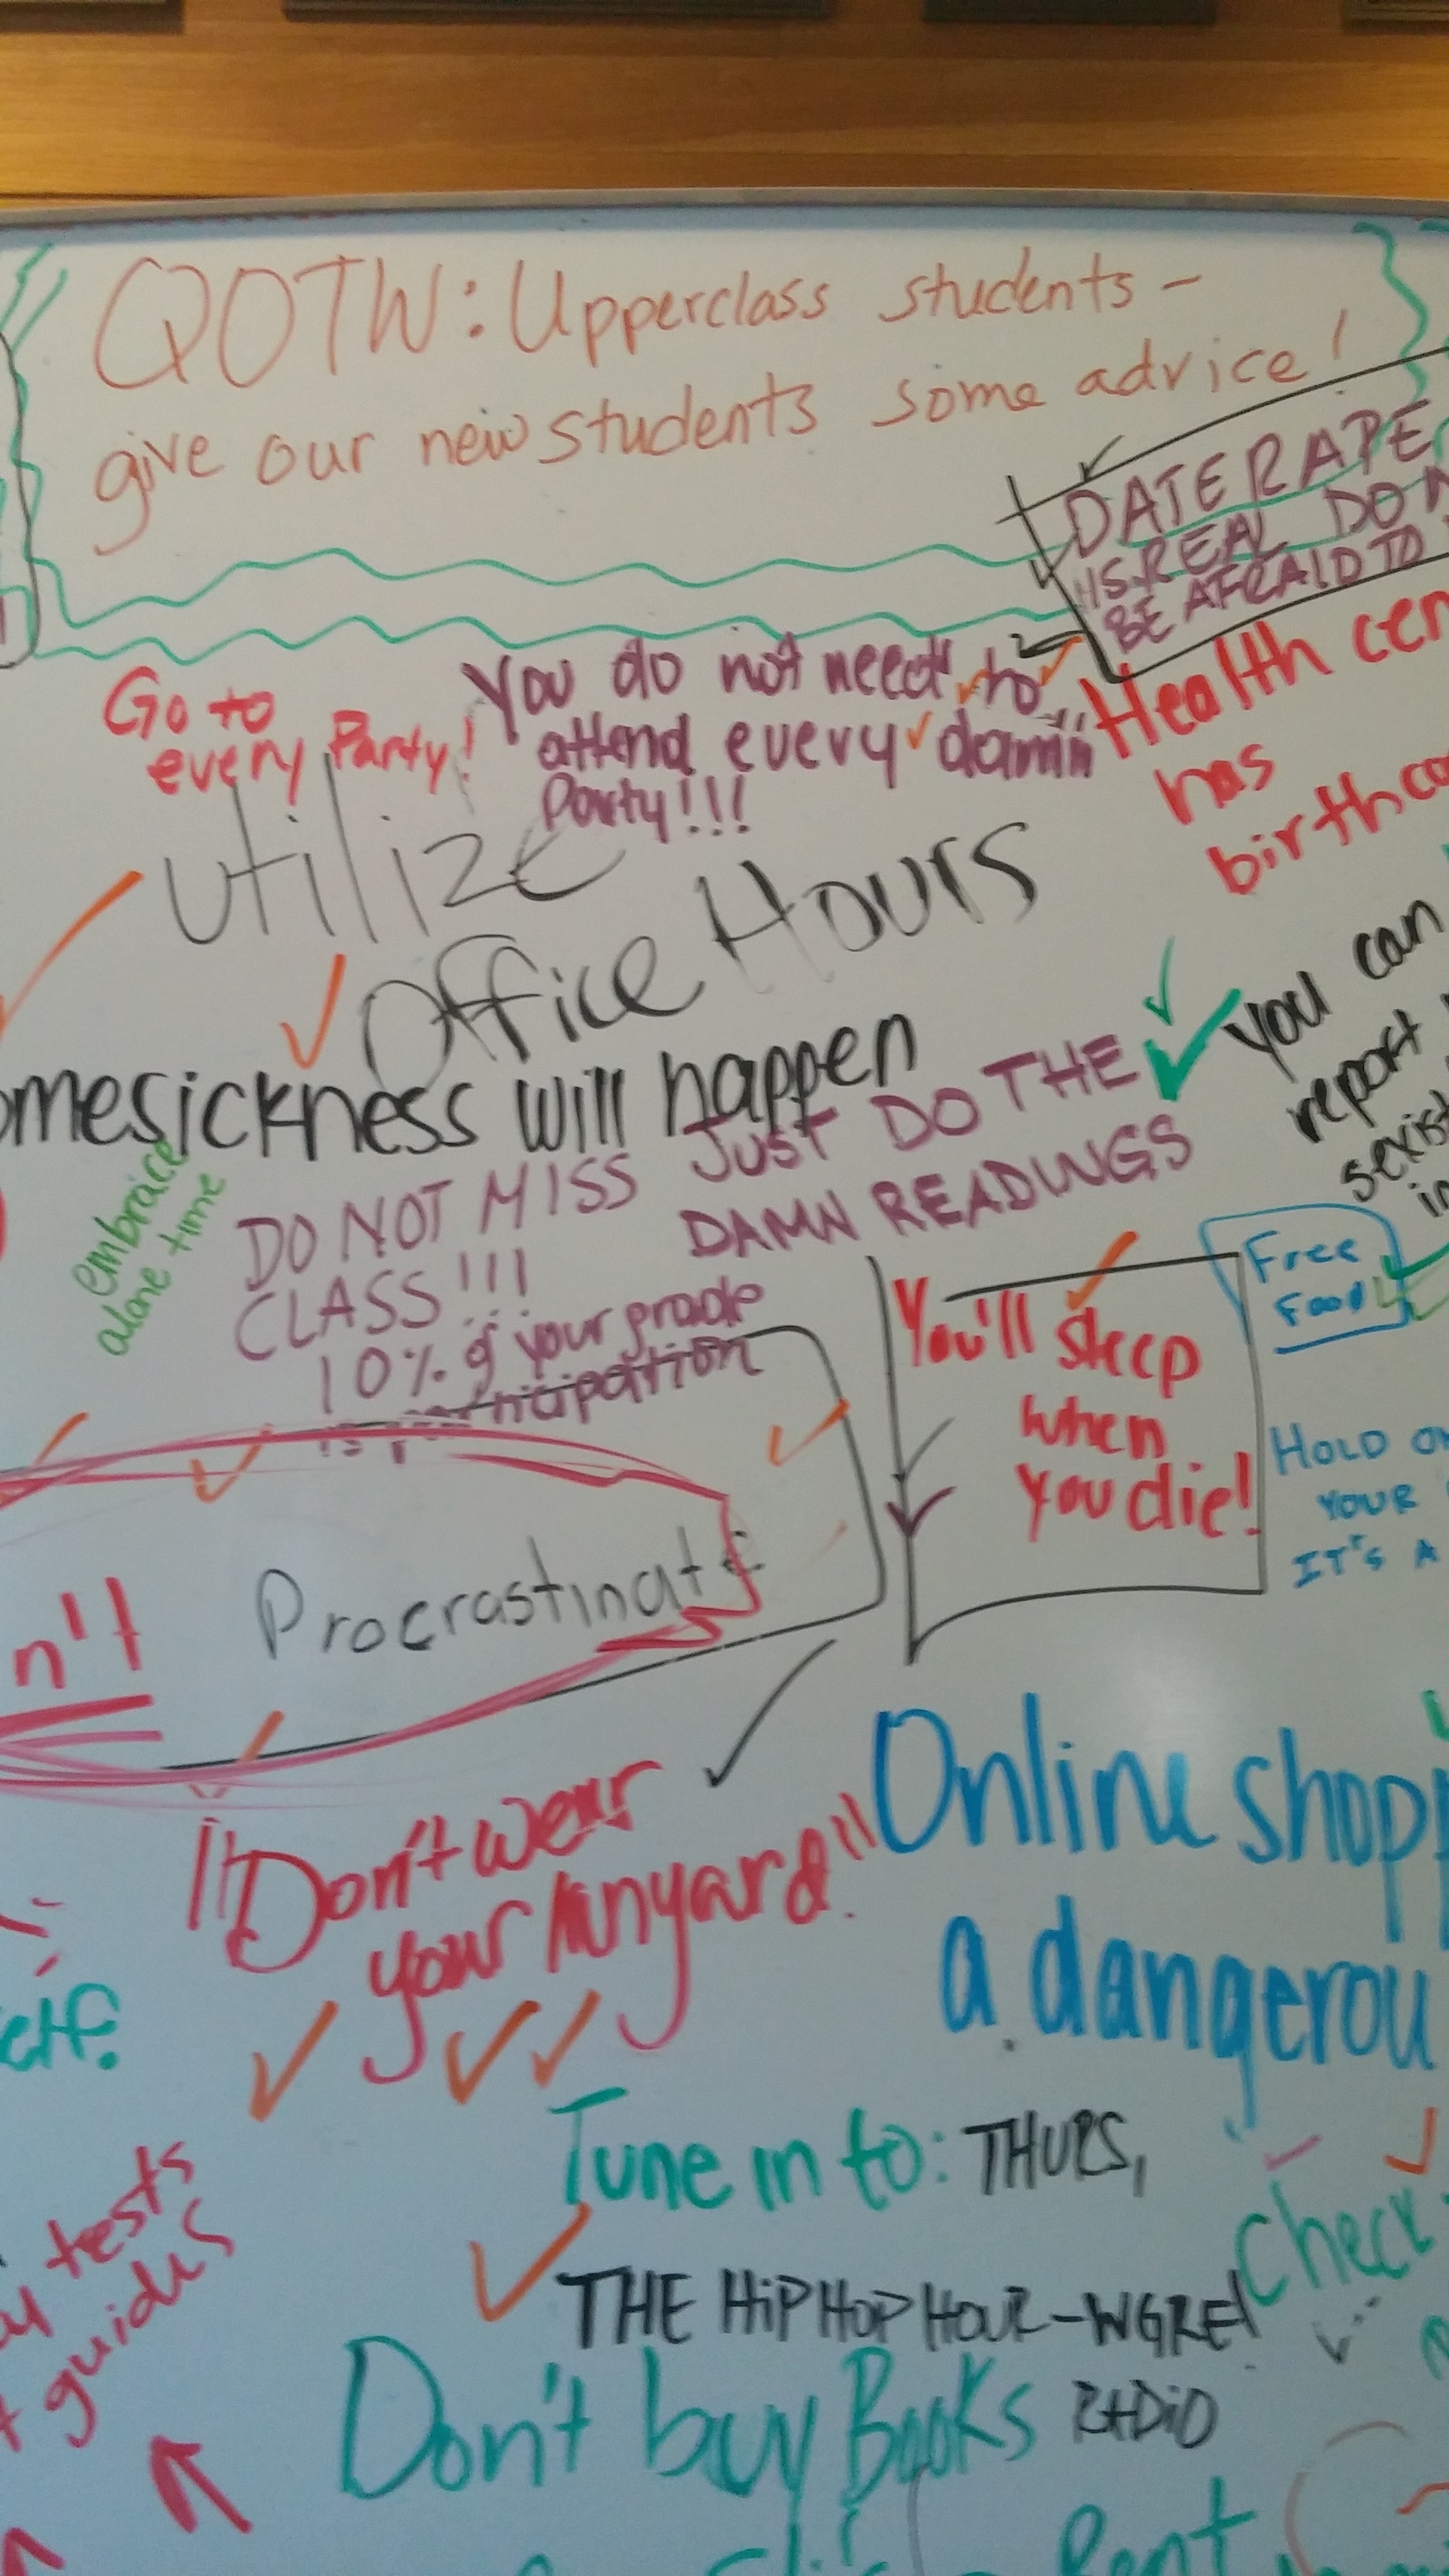 QOTW: Upperclass students -
give our new students some advice!
DATE RAPE
IS REAL DO
BE AFRAID TO
Go to
every Party!
You do not need to
attend every damn
Party!!!
Health cen
has
birth co
utilize
Office Hours
omesickness will happen
embrace
alone time
DO NOT MISS
CLASS!!!
10% of your grade
is participation
JUST DO THE
DAMN READINGS
you can
report
sexist
in
Free
Food
You'll sleep
when
You die!
HOLD O
YOUR
IT'S A
n't Procrastinate
"Don't wear
your lanyard."
Online shopp
a dangerou
elf.
Tune in to: THURS,
THE HIPHOP HOUR-WGRE
RADIO
tests
guides
Check
Don't buy Books
Rent